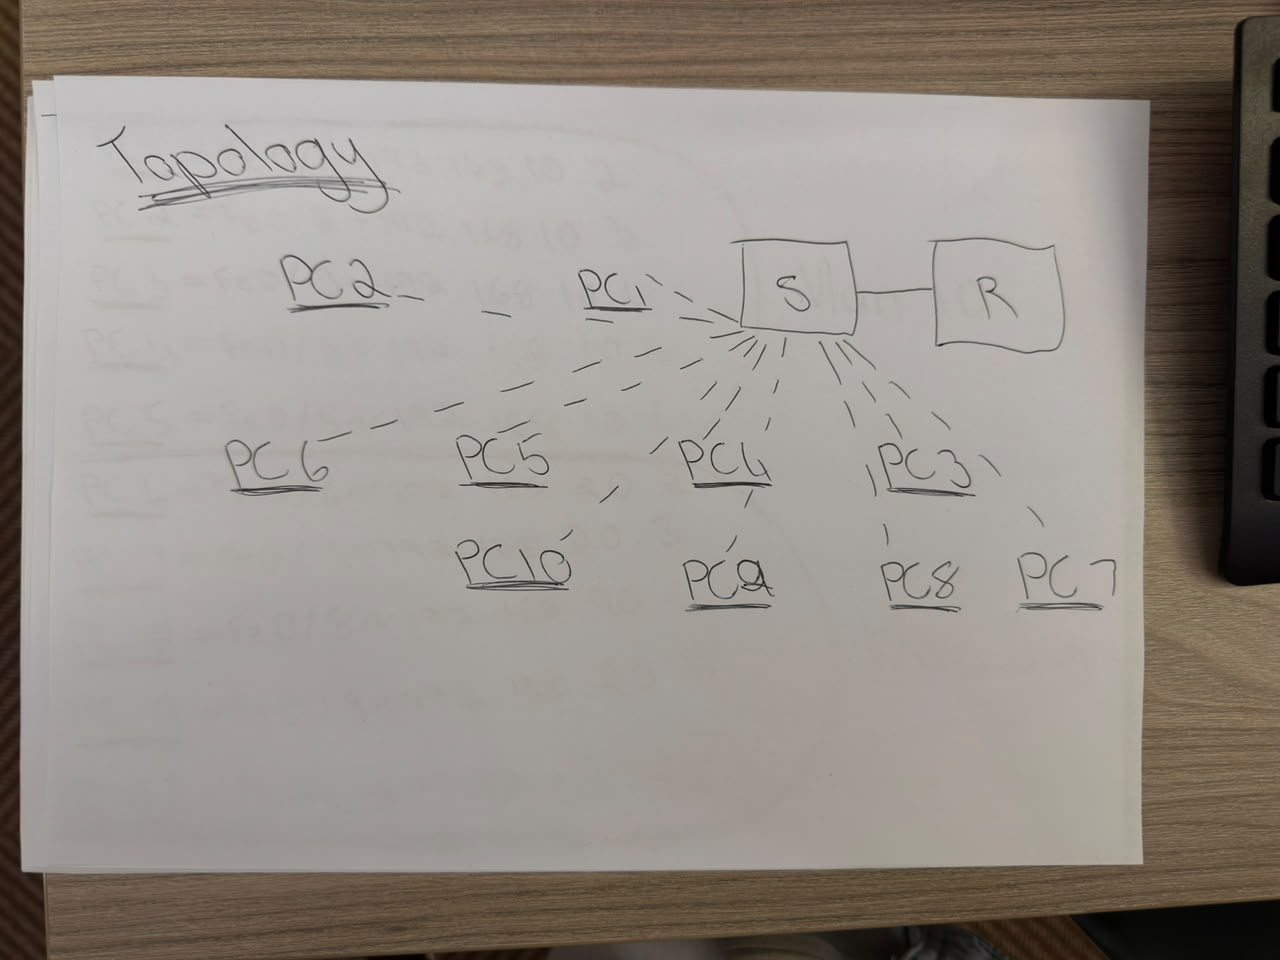 Topology
PC2 PC1 S R
PC6 PC5 PC4 PC3
PC10 PC9 PC8 PC7